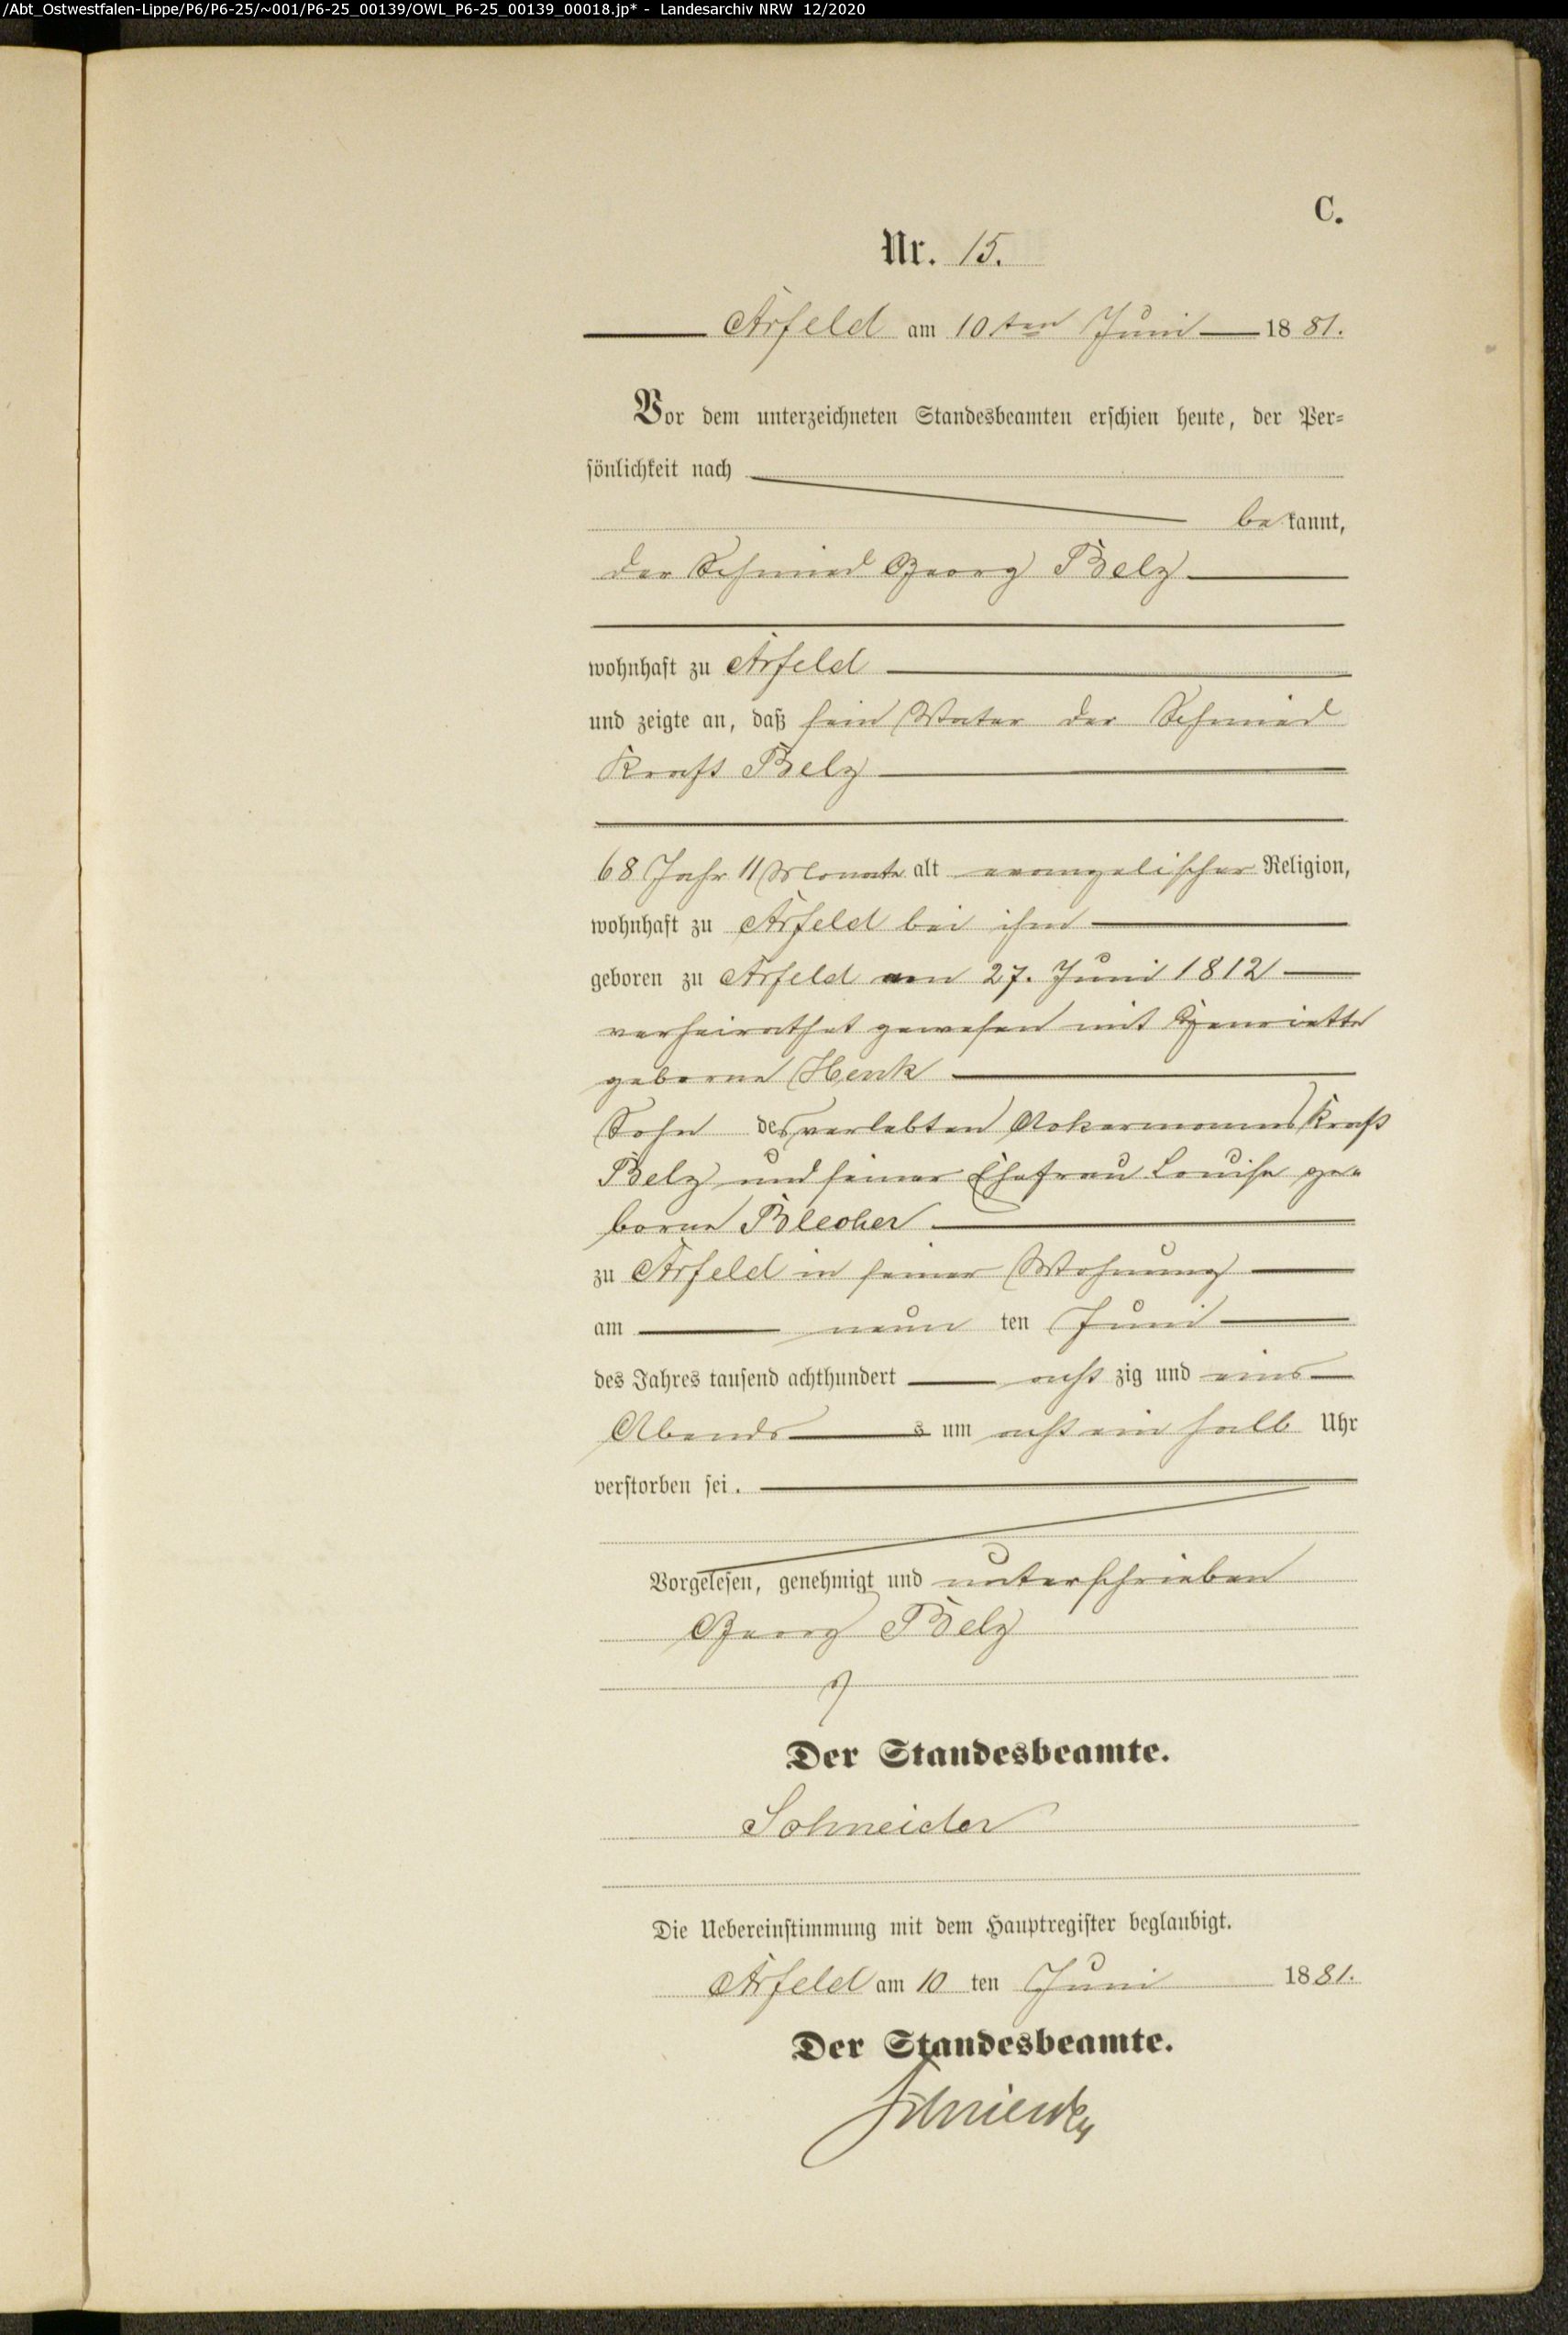 /Abt_Ostwestfalen-Lippe/P6/P6-25/~001/P6-25_00139/OWL_P6-25_00139_00018.jp* - Landesarchiv NRW 12/2020
C.
Nr. 15.
Arfeld am 10ten Juni 1881.
Vor dem unterzeichneten Standesbeamten erschien heute, der Per=
sönlichkeit nach
bekannt,
der Schmied Georg Belz
wohnhaft zu Arfeld
und zeigte an, daß sein Vater der Schmied
Kraft Belz
68 Jahr 11 Monate alt evangelischer Religion,
wohnhaft zu Arfeld bei ihm
geboren zu Arfeld am 27. Juni 1812
verheirathet gewesen mit Henriette
geborne Henk
Sohn des verlebten Ackermanns Kraft
Belz und seiner Ehefrau Louise ge=
borne Blecher
zu Arfeld in seiner Wohnung
am neun ten Juni
des Jahres tausend achthundert acht zig und eins
Abends s um acht ein halb Uhr
verstorben sei.
Vorgelesen, genehmigt und unterschrieben
Georg Belz
Der Standesbeamte.
Schneider
Die Uebereinstimmung mit dem Hauptregister beglaubigt.
Arfeld am 10 ten Juni 1881.
Der Standesbeamte.
Schneider